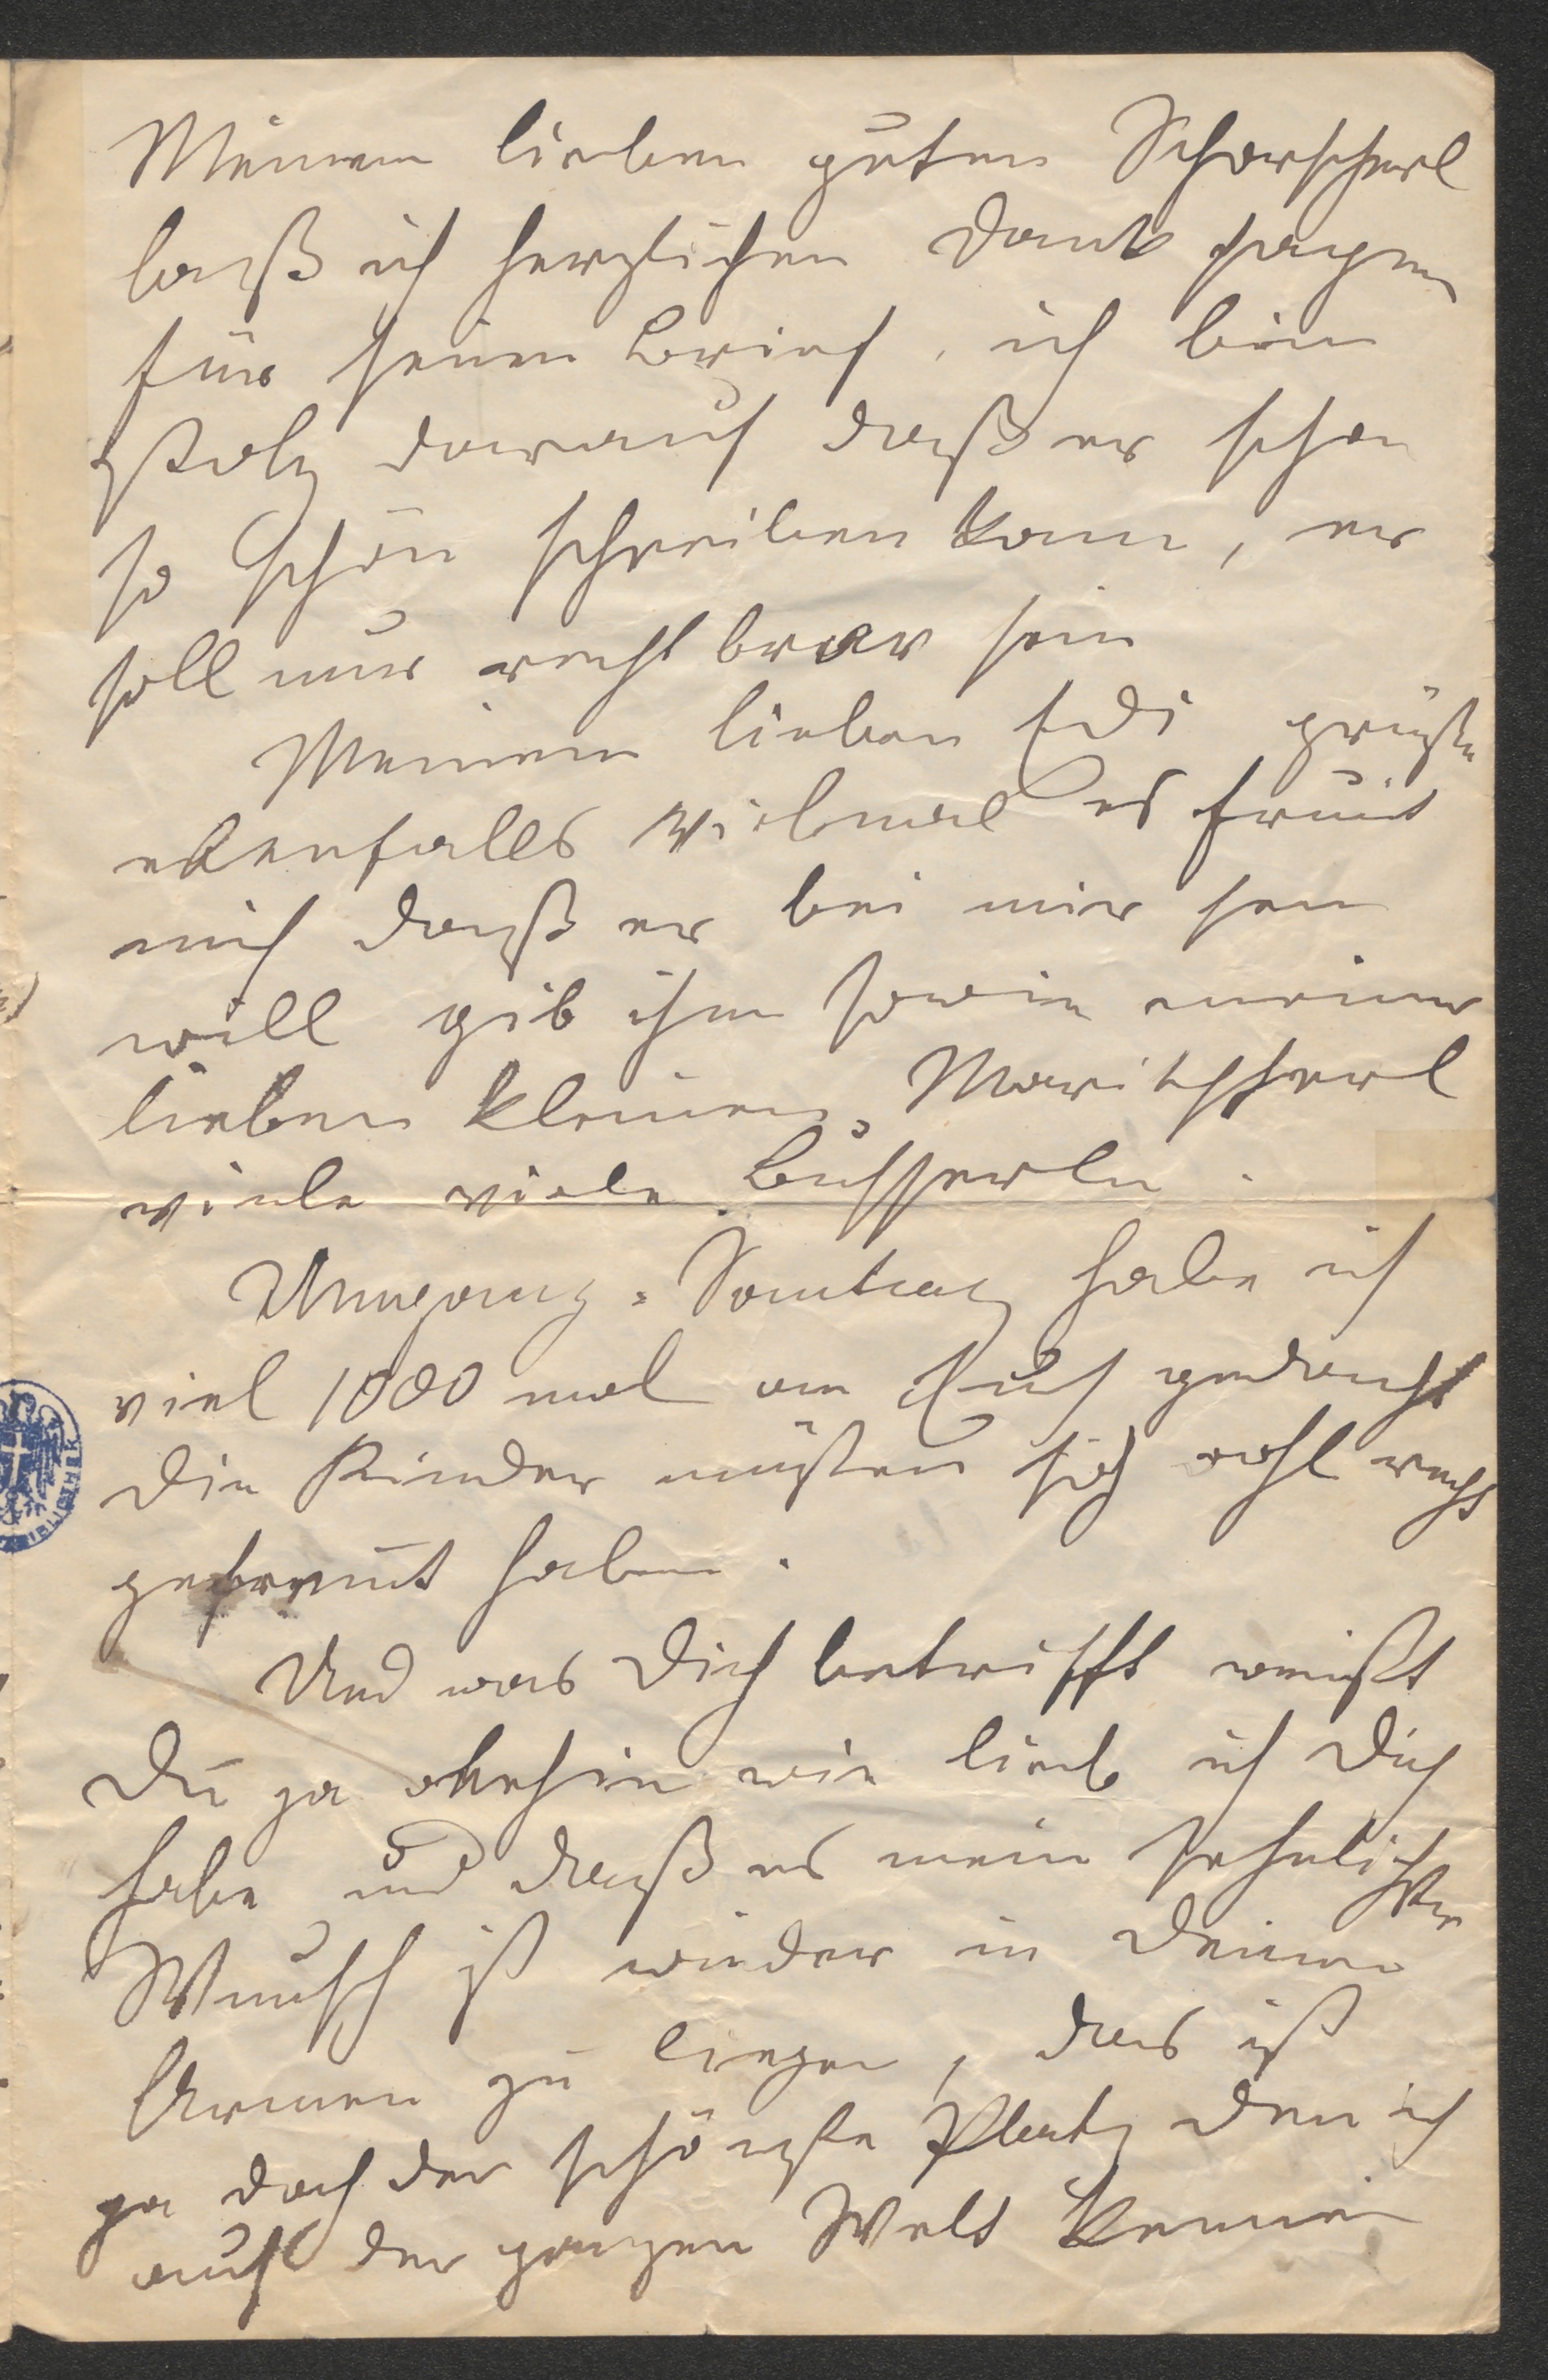 Meinem lieben guten Schorscherl
laß ich herzlichen Dank sagen
für seinen Brief, ich bin
stolz darauf daß er schon
so schön schreiben kann, er
soll nur recht brav sein
Meinem lieben Edi grüße
ebenfalls vielmal es freut
mich daß er bei mir sein
will gib ihm sowie meiner
lieben kleinen Maritscherl
viele viele Busserln.
Umgang-Sontag habe ich
viel 1000 mal an Euch gedacht
die Kinder müßen sich wohl recht
gefreut haben.
Und was Dich betrifft weißt
Du ja ohnehin wie lieb ich Dich
habe und daß es mein sehnlichster
Wunsch ist wieder in Deinen
Armen zu liegen, das ist
ja doch der schönste Platz den ich
auf der ganzen Welt kenne